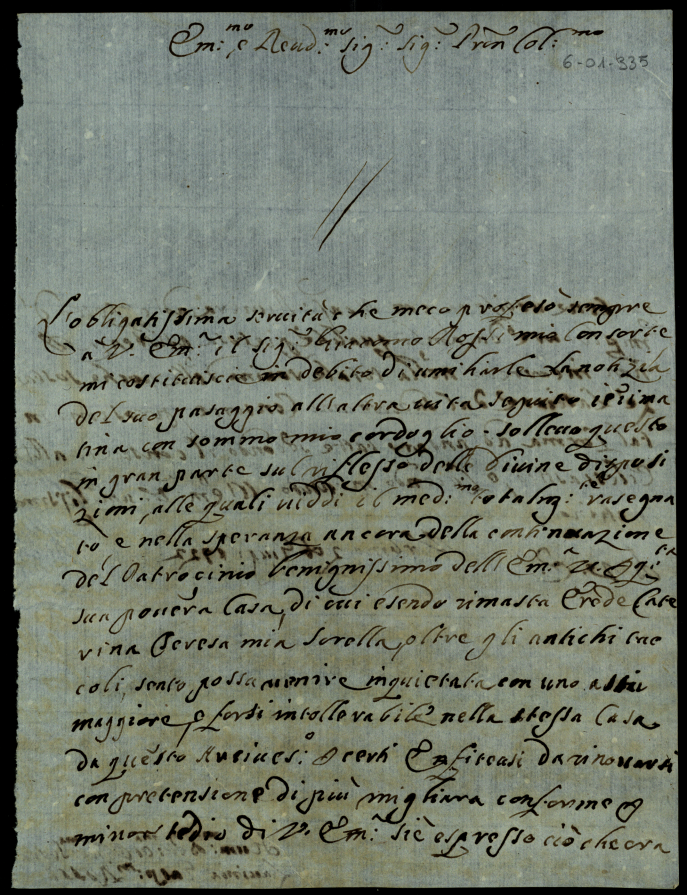 Em:mo e Reud:mo sig:r sig:r Prin Col:mo
6-01-335
L'obligatissima seruitù che meco professò sempre
a V:a Em:a il sig:r Giacomo Rossi mio Consorte
mi costituisce in debito di umiliarle la notizia
del suo pasaggio all'altra uita seguito ier
tina con sommo mio cordoglio solleuo questo
in gran parte sul riflesso delle Diuine disposi
zioni, alle quali uiddi il med:mo totalm:te rasegna
to, e nella speranza ancora della continuazione
del Patrocinio benignissimo dell'Em:a
sua pouera Casa, di cui esendo rimasta Erede Cate
rina Teresa mia Sorella, oltre gli antichi
coli, sento possa uenire inquietata con uno
maggiore, e forsi intollerabile nella stessa Casa
da questo Arciues:o p certi Enfiteusi da rinouarsi
con pretensione di più migliara conforme p
minor tedio di V:a Em:a si è espresso ciò che ora